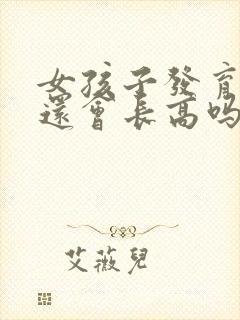 女孩子發育
還會長高吗
艾薇兒